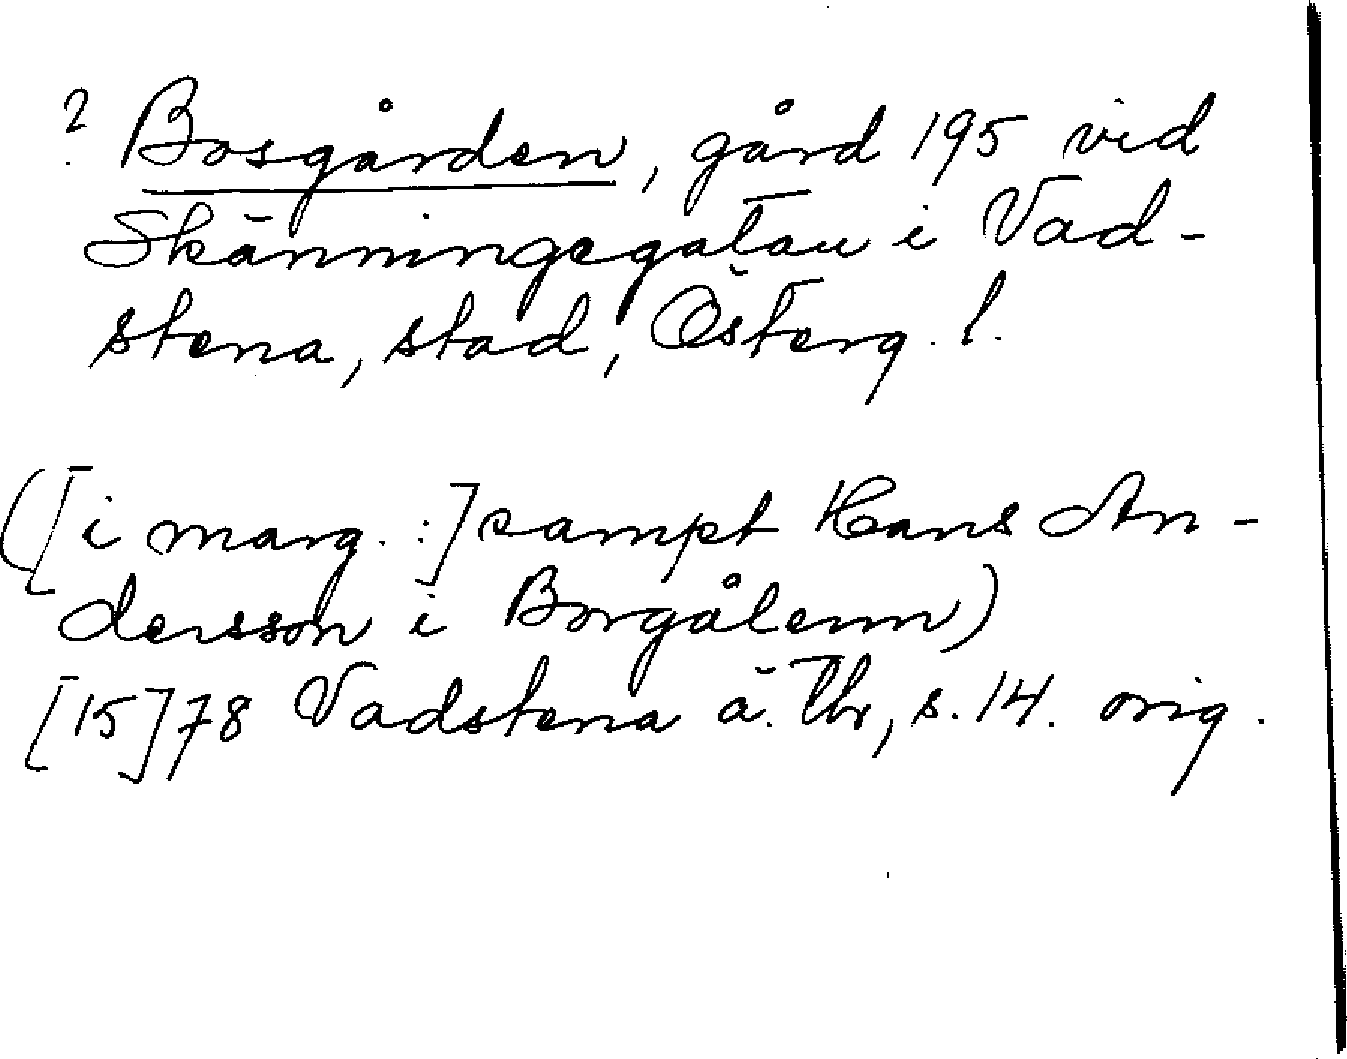 ? Bosgården, gård 195 vid
Skänningegatan i Vad-
stena, stad, Österg. l.
([i marg. :] sampt Hans An-
dersson i Borgålenn)
[15]78 Vadstena ä. Tb, s. 14. orig.